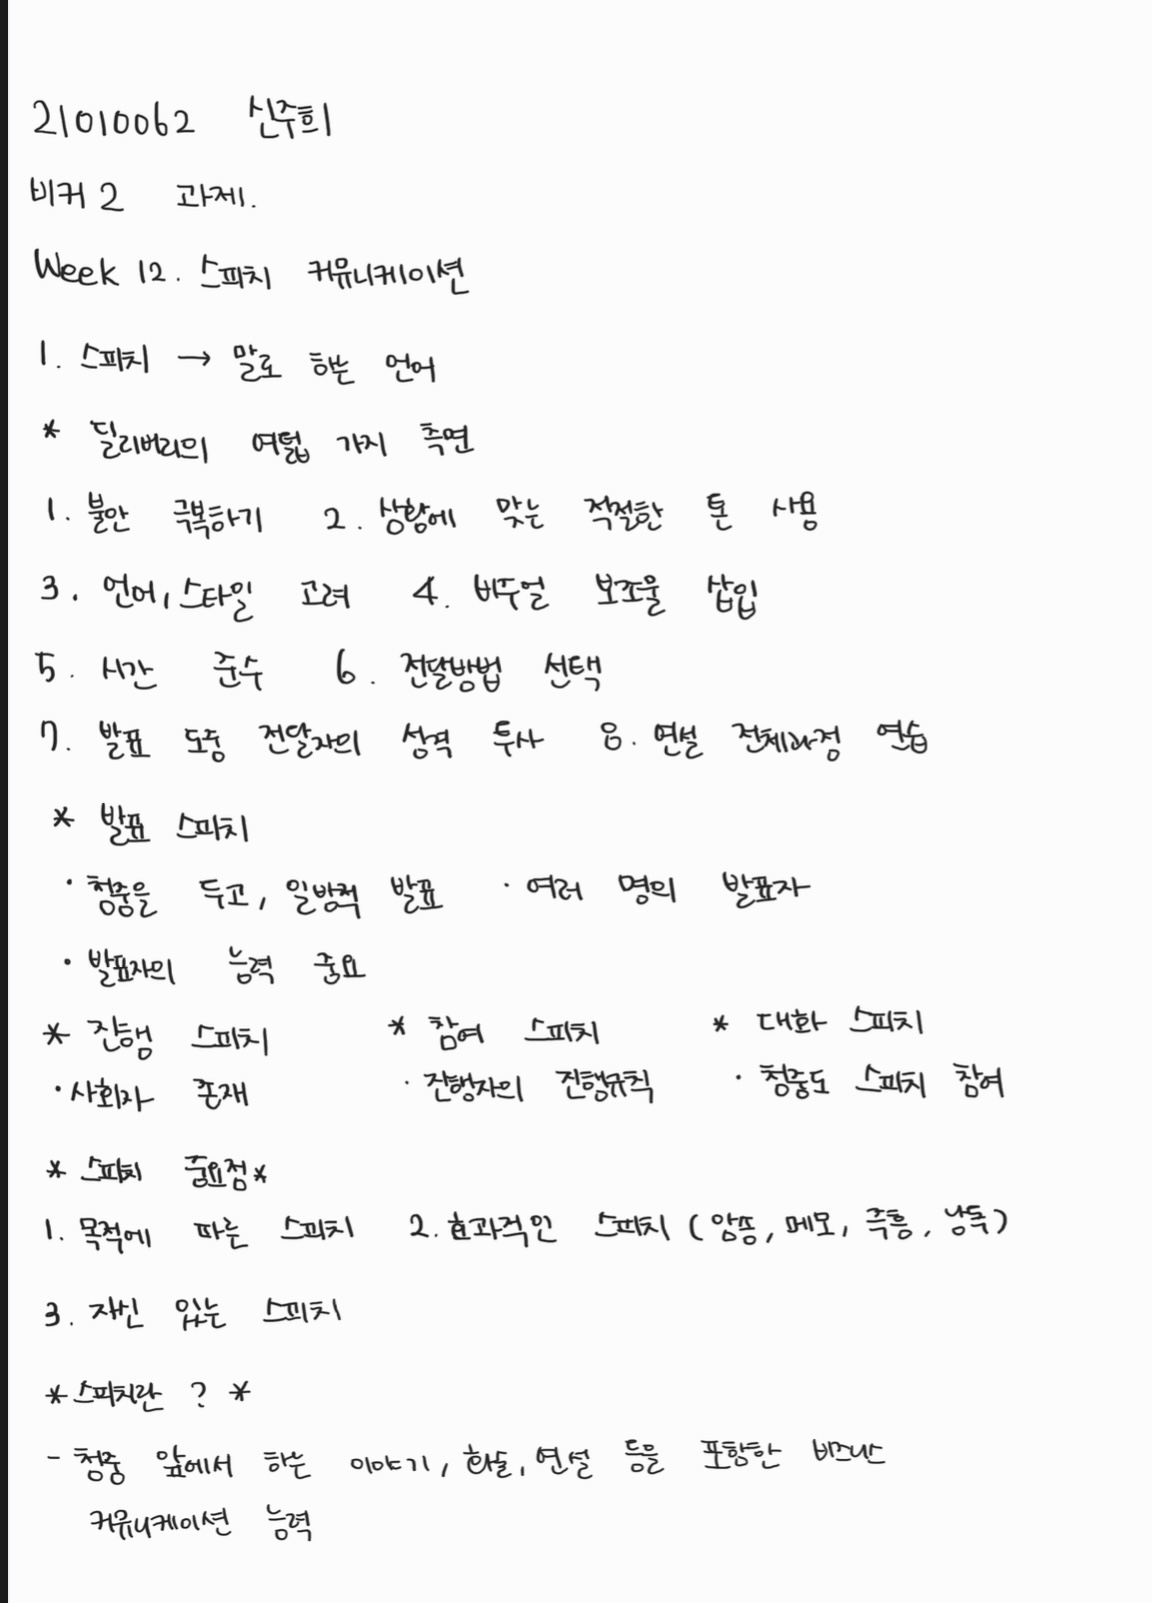 21010062 신주희
비커2 과제.
Week 12. 스피치 커뮤니케이션
1. 스피치 → 말로 하는 언어
* 딜리버리의 여덟 가지 측면
1. 불안 극복하기 2. 상황에 맞는 적절한 톤 사용
3. 언어, 스타일 고려 4. 비주얼 보조물 삽입
5. 시간 준수 6. 전달방법 선택
7. 발표 도중 전달자의 성격 투사 8. 연설 전체과정 연습
* 발표 스피치
· 청중을 두고, 일방적 발표 · 여러 명의 발표자
· 발표자의 능력 중요
* 진행 스피치 * 참여 스피치 * 대화 스피치
· 사회자 존재 · 진행자의 진행규칙 · 청중도 스피치 참여
* 스피치 중요점 *
1. 목적에 따른 스피치 2. 효과적인 스피치 (암송, 메모, 즉흥, 낭독)
3. 자신 있는 스피치
* 스피치란 ? *
- 청중 앞에서 하는 이야기, 화술, 연설 등을 포함한 비즈니스
커뮤니케이션 능력